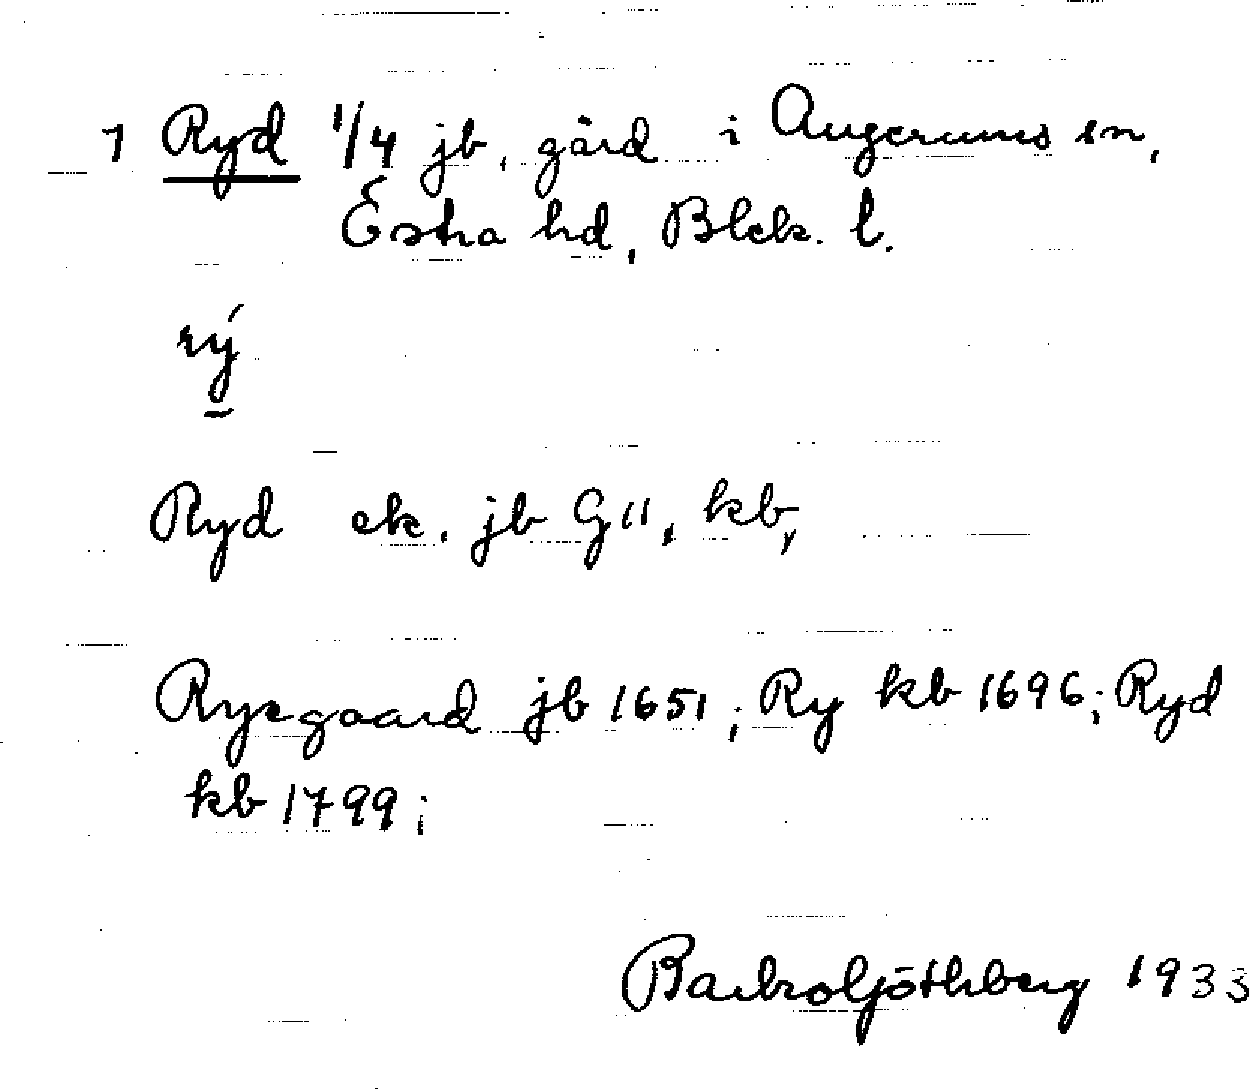 7 Ryd 1/4 jb, gård i Augerums sn,
Östra hd, Blek. l.
rý
Ryd ek. jb GII, kb,
Ryegaard jb 1651; Ry kb 1696; Ryd
kb 1799;
Barbro Göthberg 1933